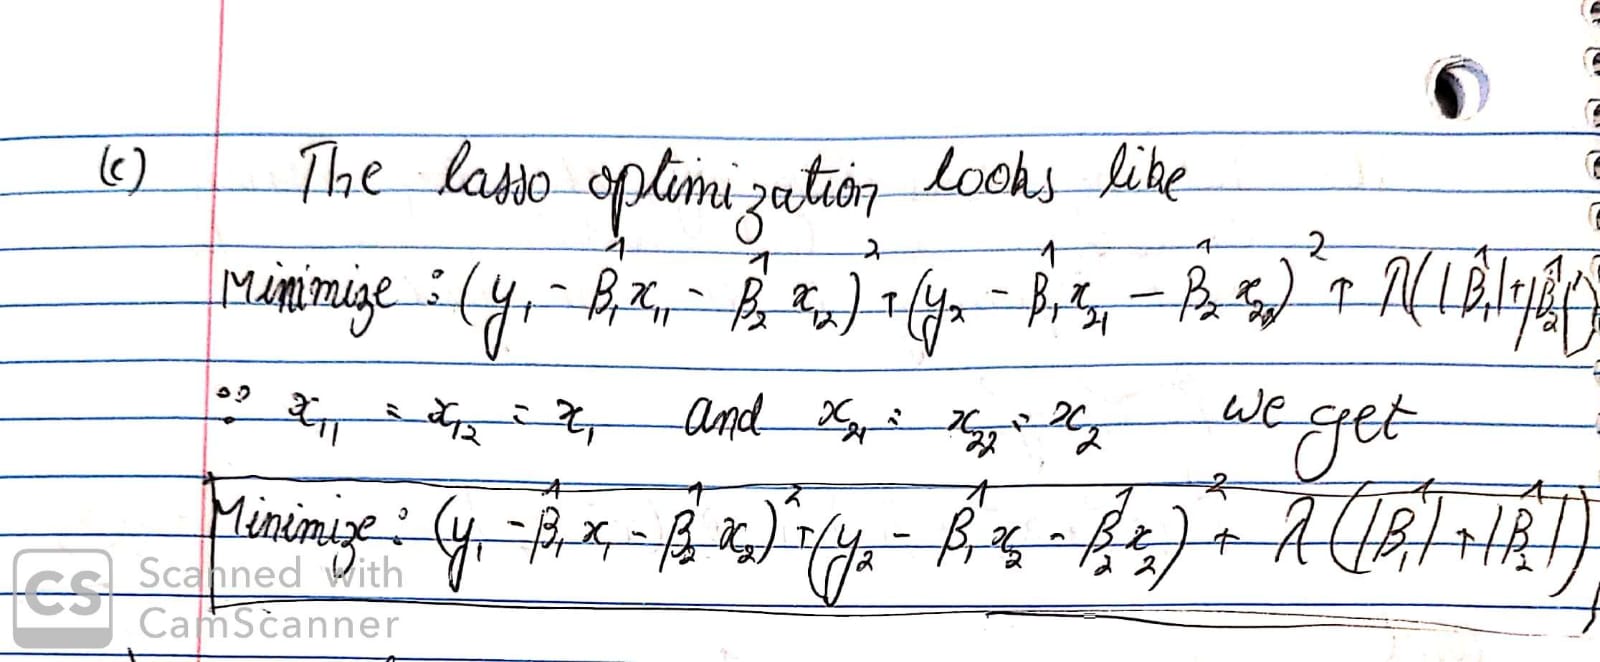 (c) The lasso optimization looks like
Minimize : (y₁ - β̂₁x₁₁ - β̂₂ x₁₂)² + (y₂ - β̂₁x₂₁ - β̂₂ x₂₂)² + λ(|β̂₁|+|β̂₂|)
∵ x₁₁ = x₁₂ = x₁ and x₂₁ = x₂₂ = x₂ we get
Minimize : (y₁ - β̂₁x₁ - β̂₂ x₂)² + (y₂ - β̂₁x₂ - β̂₂x₂)² + λ(|β̂₁|+|β̂₂|)
CS Scanned with
CamScanner